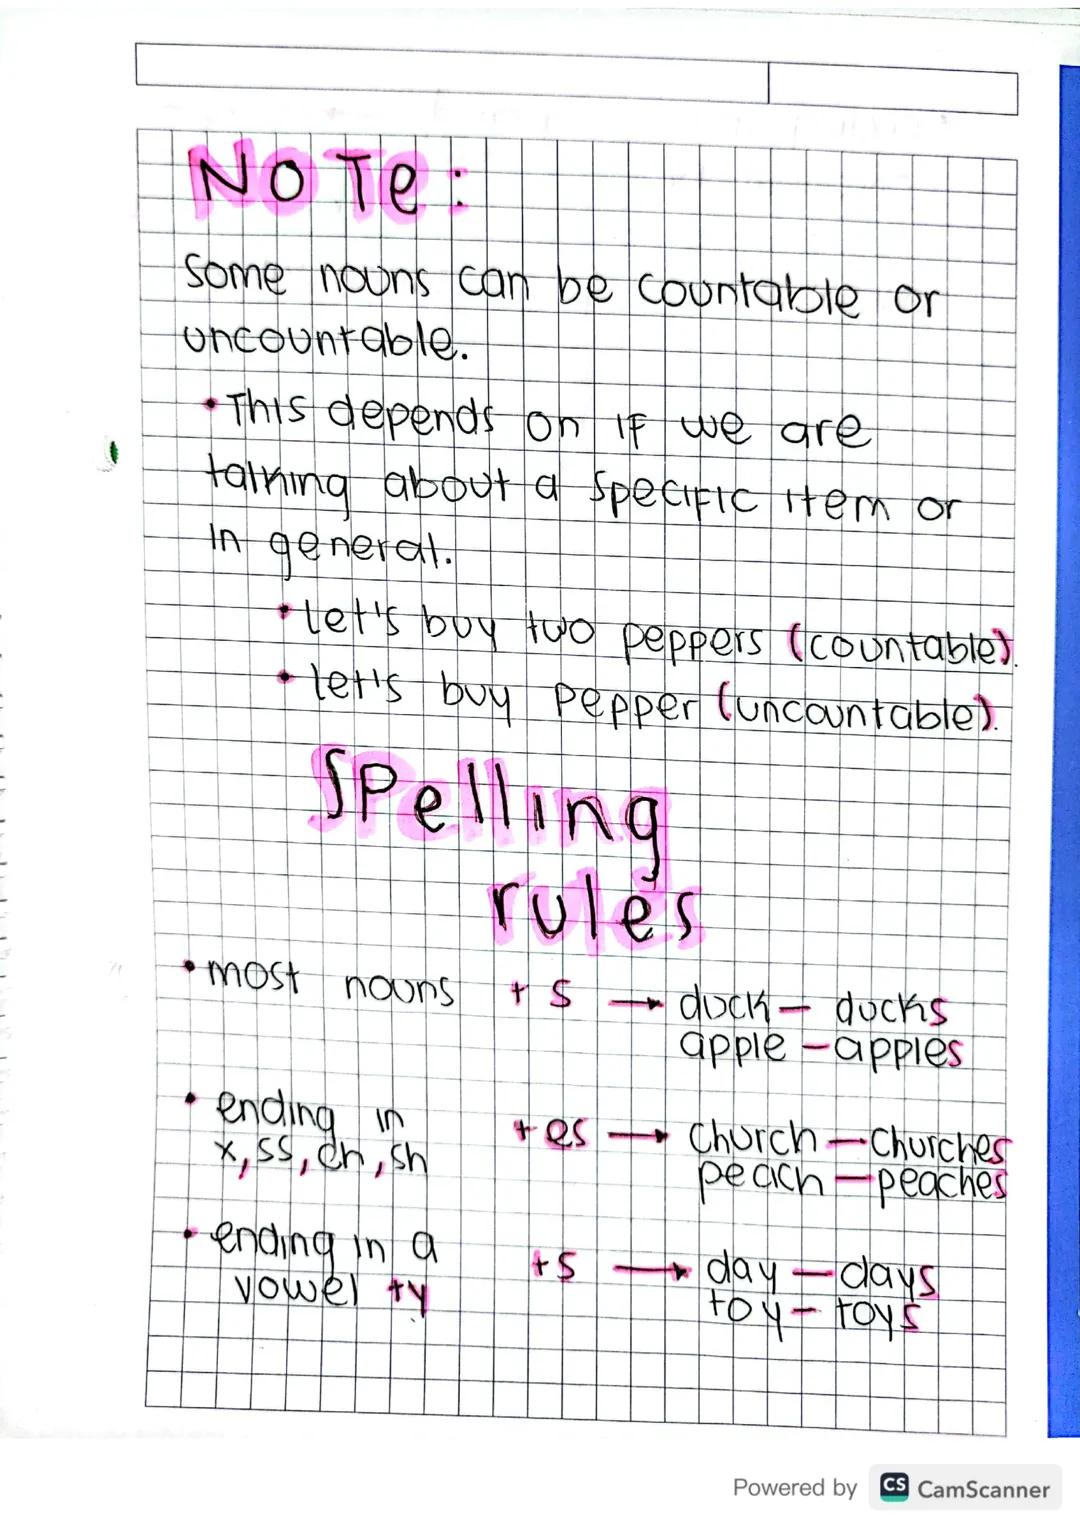 NOTe:
some nouns can be countable or
uncountable.
• This depends on if we are
talking about a specific item or
in general.
• let's buy two peppers (countable).
• let's buy pepper (uncountable).
Spelling
rules
• most nouns + s → duck – ducks
apple – apples
• ending in
x, ss, ch, sh + es → church – churches
peach – peaches
• ending in a
vowel +y + s → day – days
toy – toys
Powered by CS CamScanner